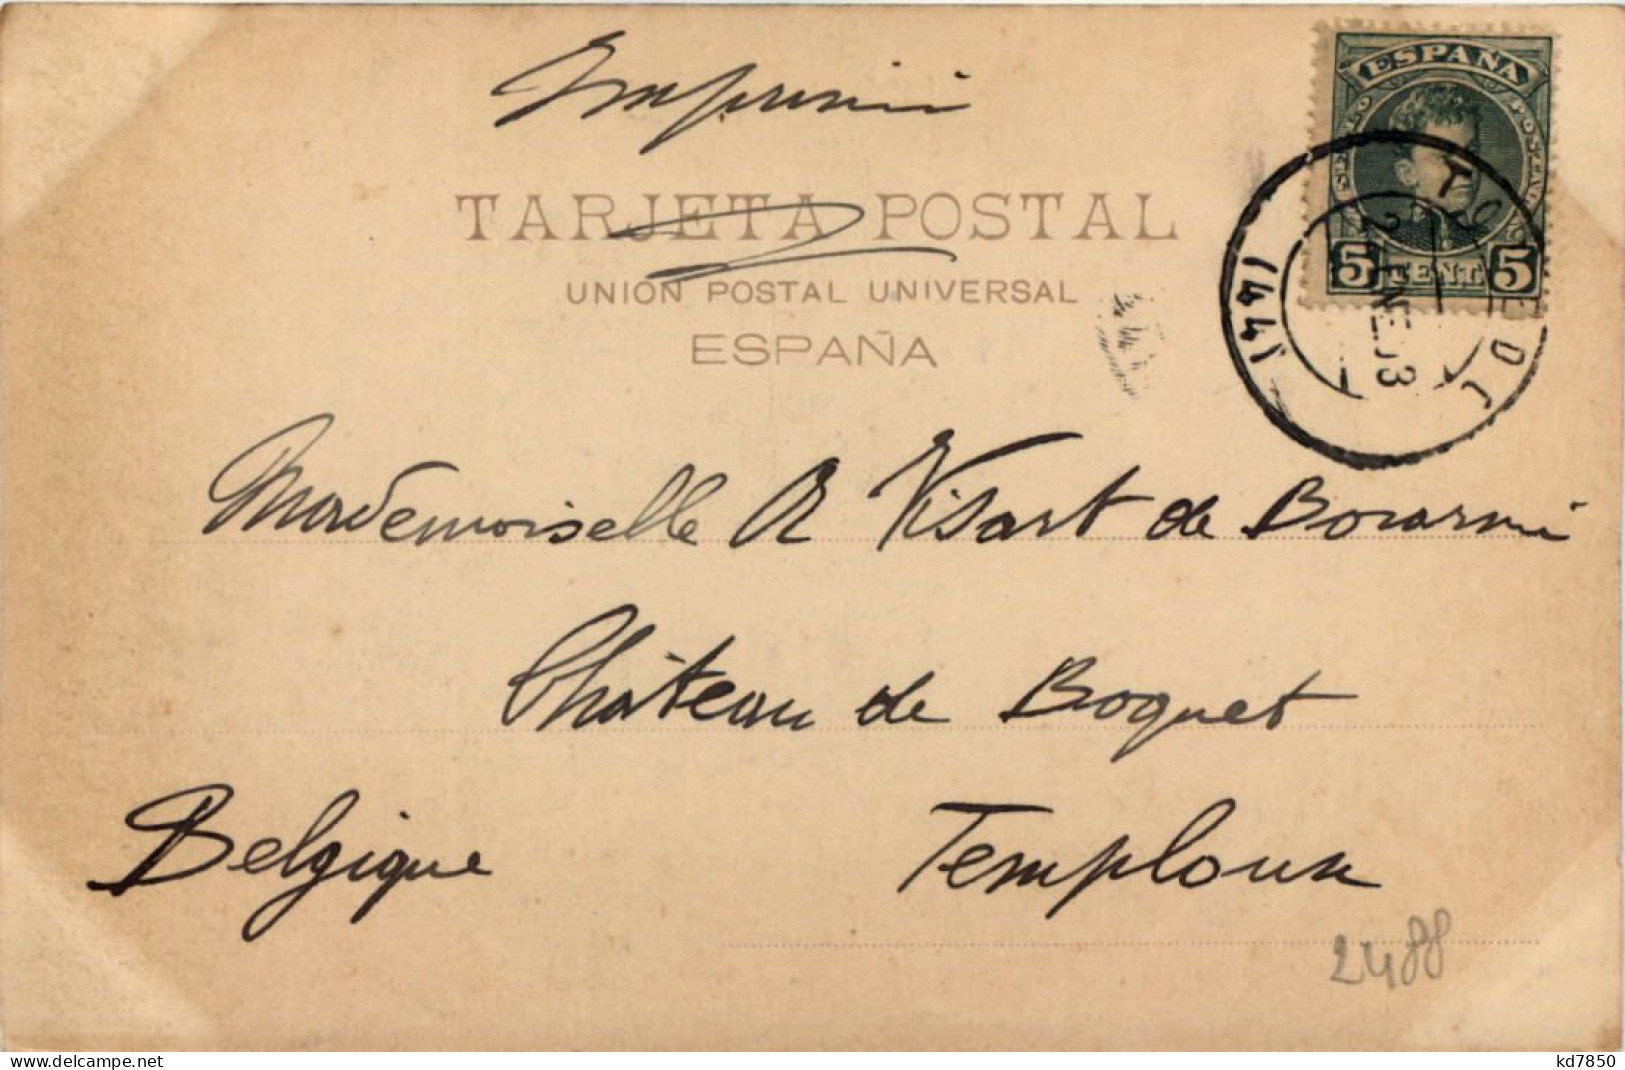 Imprimé
ESPAÑA
TARJETA POSTAL
5 CENT. 5
UNION POSTAL UNIVERSAL
ESPAÑA
TOLEDO
ENE 03
(44)
Mademoiselle A Visart de Bocarmé
Château de Boquet
Belgique Temploux
2488
delcampe.net
kd7850